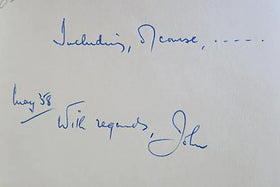 Including, of course, .....
May '58
With regards, John